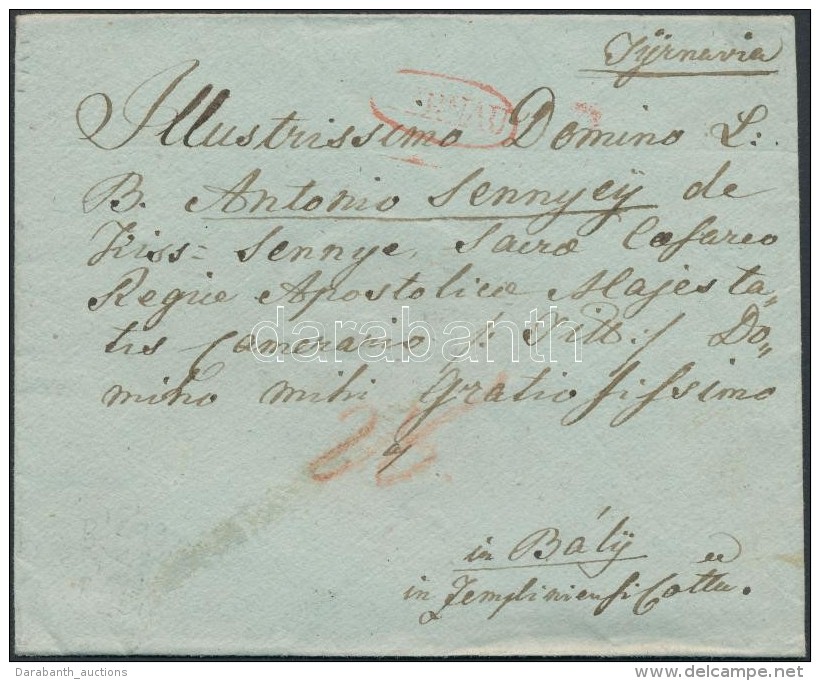 Tÿrnavia
TIRNAU
Illustrissimo Domino L:
B. Antonio Sennyeÿ de
Kiss= Sennye, Sacræ Cæsareo
Regiæ Apostolicæ Majesta„
tis Camerario /: Titt :/ Do„
mino mihi Gratiosissimo
darabanth
in Bálÿ
in Zempliniensi Cottu.
Darabanth_auctions
www.delcampe.net